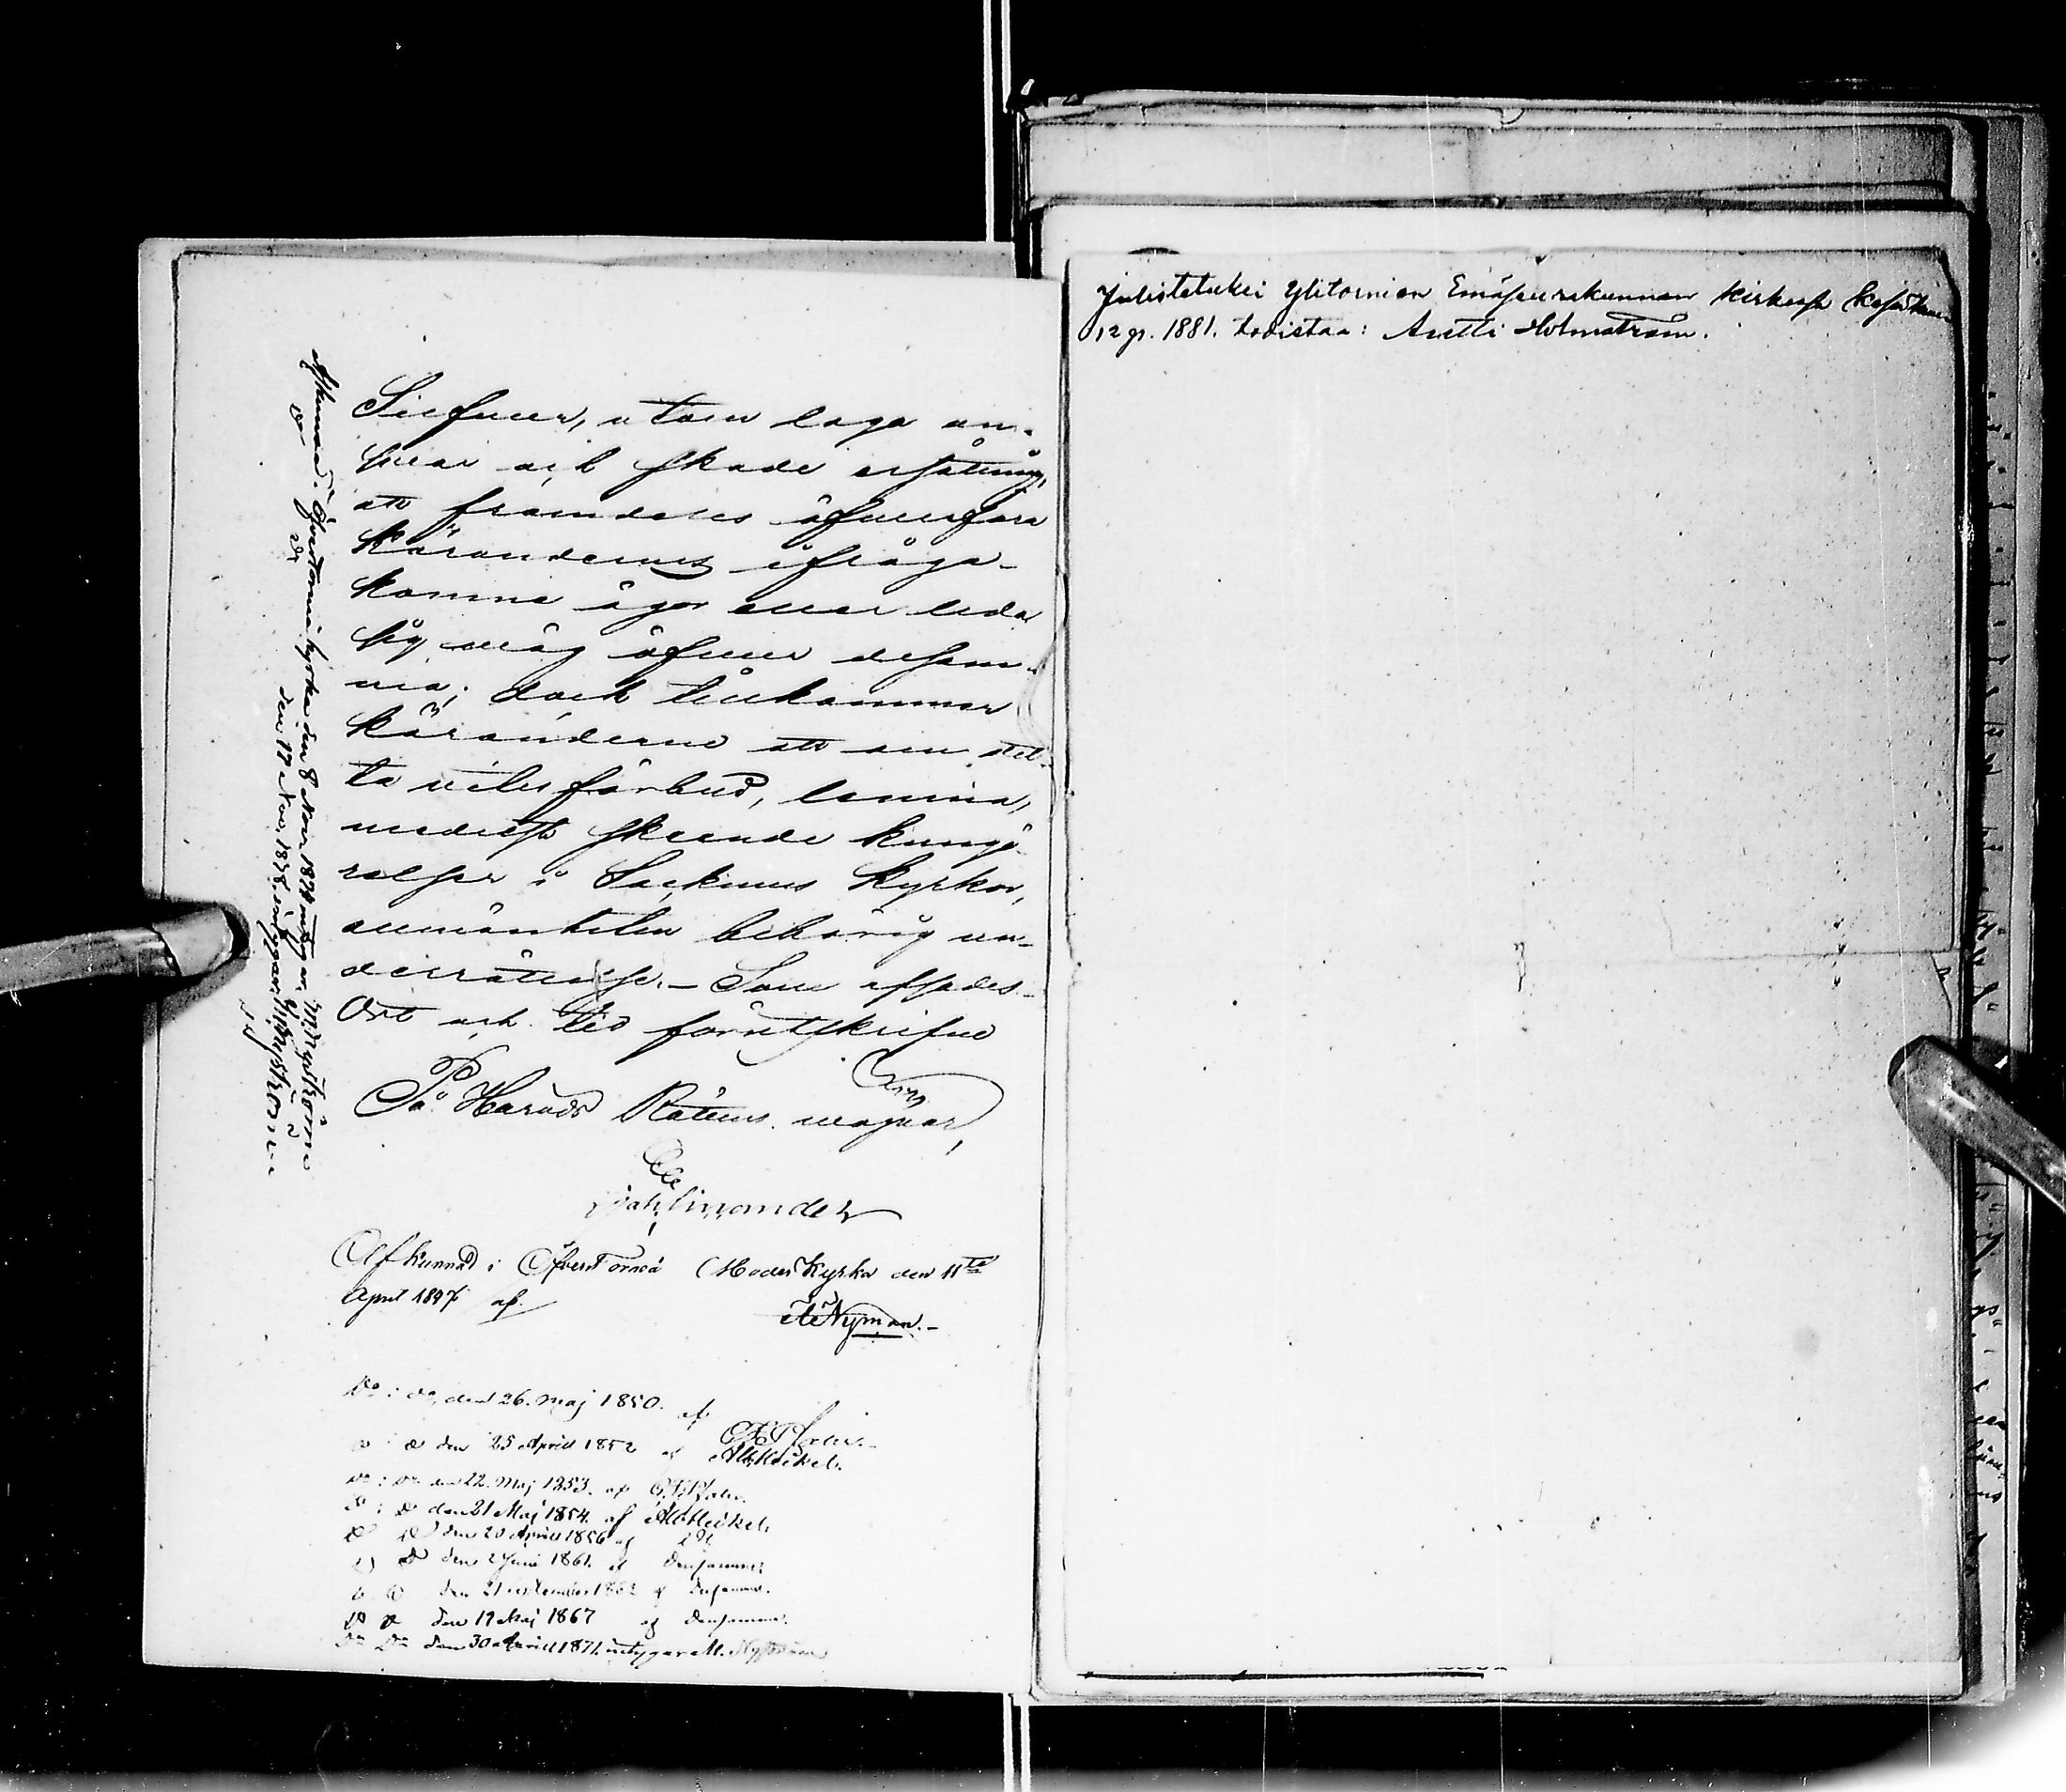 Siefvuer, utom laga an-
svar och skade ersättning,
att framdeles öfverfara
Kärandernes ifråga-
komne ägor eller leda
sig väg öfver desam-
ma; dock tillkommer
käranderne att om det-
ta vites förbud, lemna,
medelst skeende kungö-
relser i Socknens Kyrkor,
allmänheten behörig un-
derrättelse. – Som afsades.
Ort och tid förutskrifne
På Härads Rättens vägnar,
Afkunnad i Öfvertorneå Moderkyrka den 11te
April 1847 af
Nyman.
Do i do, den 26. Maj 1850. af
do do den 25 April 1852 af
Do i do den 22. Maj 1853. af
Do i do den 21 Maj 1854. af Alb. Heikel.
Do Do den 20 April 1856 af
Do Do den 2 Juni 1861. af Densamme
Do Do den 21 September 1862 af Densamme.
Do Do den 19 Maj 1867 af Densamme.
Do Do den 30 April 1871. intygar M. Nyström
Afkunnad i Öfvertorneå kyrka den 8 Nov 1874 intygar M. Nyström
do do den 17 Nov. 1878. intygar M. Nyström
Julistetuksi Ylitornion Emäseurakunnan kirkossa Kesäkuun
12 p. 1881. todistaa: Antti Holmström.